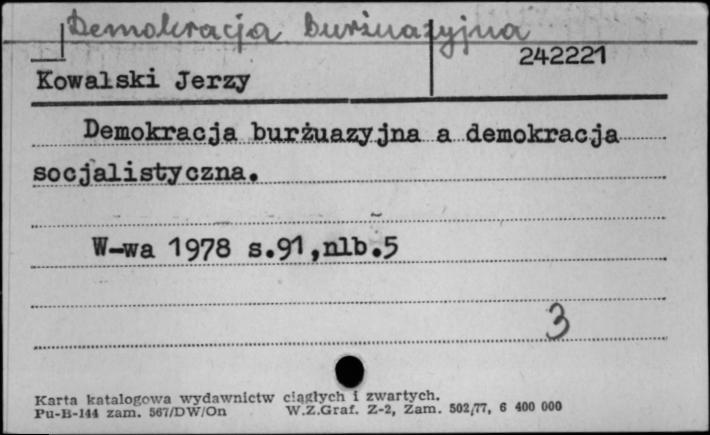 Demokracja burżuazyjna
242221
Kowalski Jerzy
Demokracja burżuazyjna a demokracja
socjalistyczna.
W-wa 1978 s.91,nlb.5
3
Karta katalogowa wydawnictw ciągłych i zwartych.
Pu-B-144 zam. 567/DW/On W.Z.Graf. Z-2, Zam. 502/77, 6 400 000